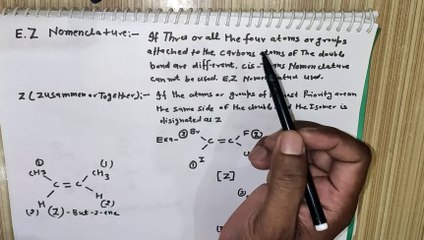 E.Z Nomenclature:- If Three or all the four atoms or groups
attached to the carbons atoms of The double
bond are different, cis-Trans Nomenclature
cannot be used. E.Z Nomenclature used.
Z (Zusammen or Together):- If the atoms or groups of Priority are on
the same side of the double and the Isomer is
disignated as Z
Exa- ② Br F ②
C=C
① I
[Z]
① (1)
CH3 CH3
C=C
H H
(2) (2)
(Z)-But-2-ene